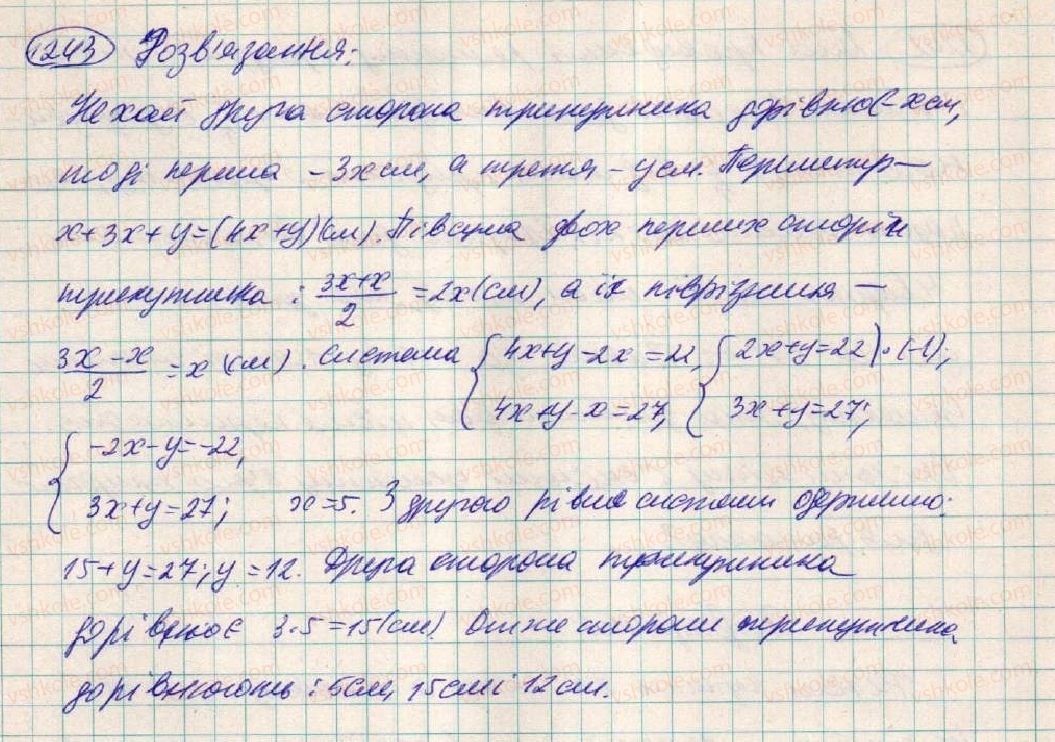 1243 Розв'язання:
Нехай друга сторона трикутника дорівнює - x см,
тоді перша - 3x см, а третя - y см. Периметр —
x + 3x + y = (4x + y)(см). Півсума двох перших сторін
трикутника : \frac{3x+x}{2} = 2x (см), а їх піврізниця —
\frac{3x-x}{2} = x (см). система { 4x+y-2x=22, 4x+y-x=27, { 2x+y=22 | · (-1); 3x+y=27;
{ -2x-y=-22,
3x+y=27; x=5. З другого рівня системи одержимо:
15+y=27; y=12. Друга сторона трикутника
дорівнює 3·5=15 (см) Отже сторони трикутника
дорівнюють : 5см, 15см і 12см.